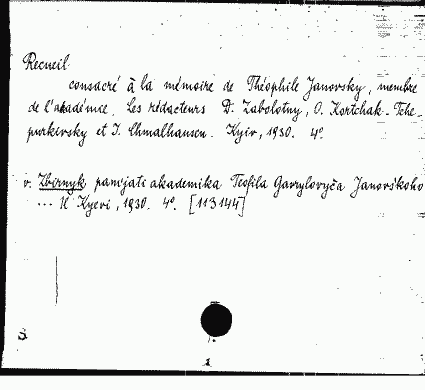 Recueil
consacré à la mémoire de Théophile Janovsky, membre
de l'académie. Les rédacteurs D. Zabolotny, O. Kortchak-Tche-
purkivsky et I. Chmalhausen. Kyiv, 1930. 4º.
v. Zbirnyk pamjati akademika Teofila Gavrylovyča Janovśkoho
... U Kyevi, 1930. 4º. [113144]
S.
1